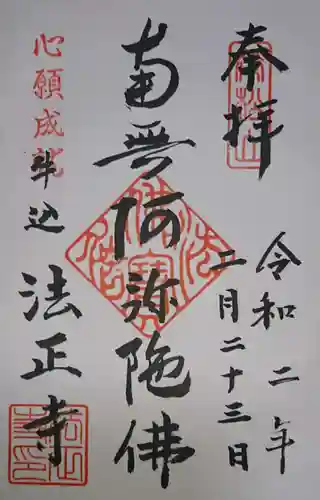 奉拝
令和二年
二月二十三日
南無阿弥陀佛
心願成就
牛込
法正寺